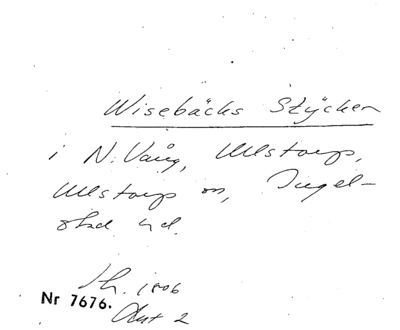 Wisebäcks Stycken
i N. Vång, Ullstorps,
Ullstorps sn, Ingel-
stad hd.
Th. 1806
Nr 7676.
Akt 2